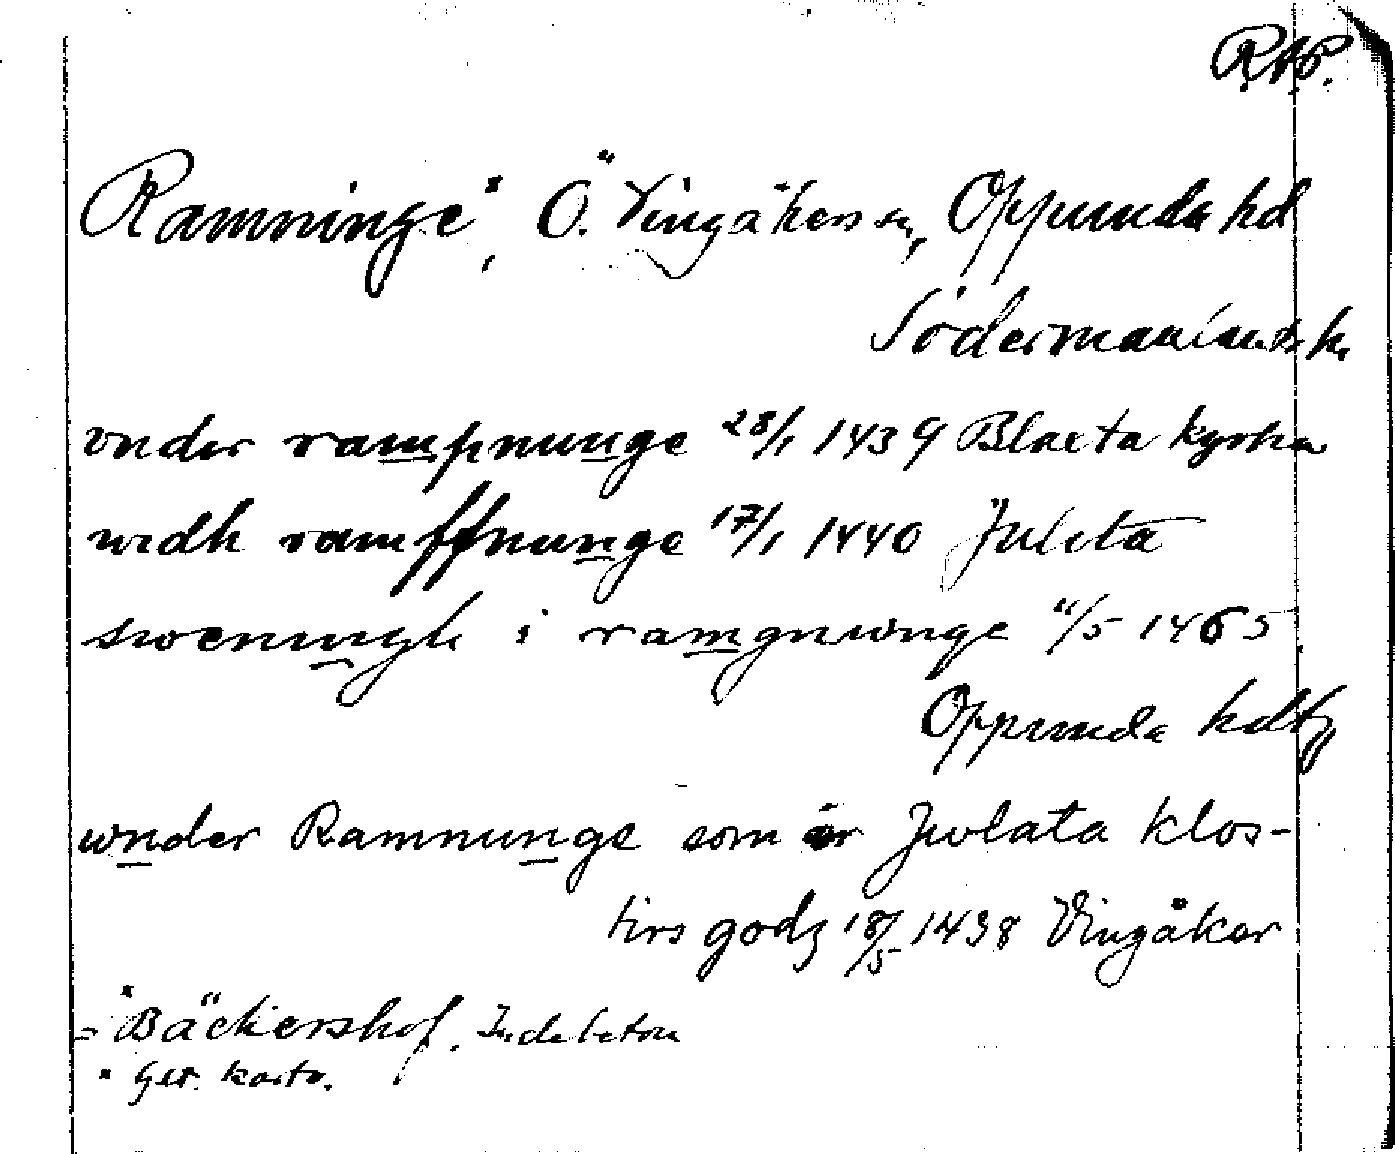 RAP.
Ramninge*, Ö. Vingåkers sn, Oppunda hd
Södermanlands
vnder rampnunge 28/1 1439 Blacta kyrka
widh ramffnunge 17/1 1440 Julita
swenungh i ramgnunge 11/5 1465
Oppunda hdtg
wnder Ramnunge som är Julata klos-
tirs godz 18/5 1438 Vingåker
= *Bäckershof.
* Gen. karta.